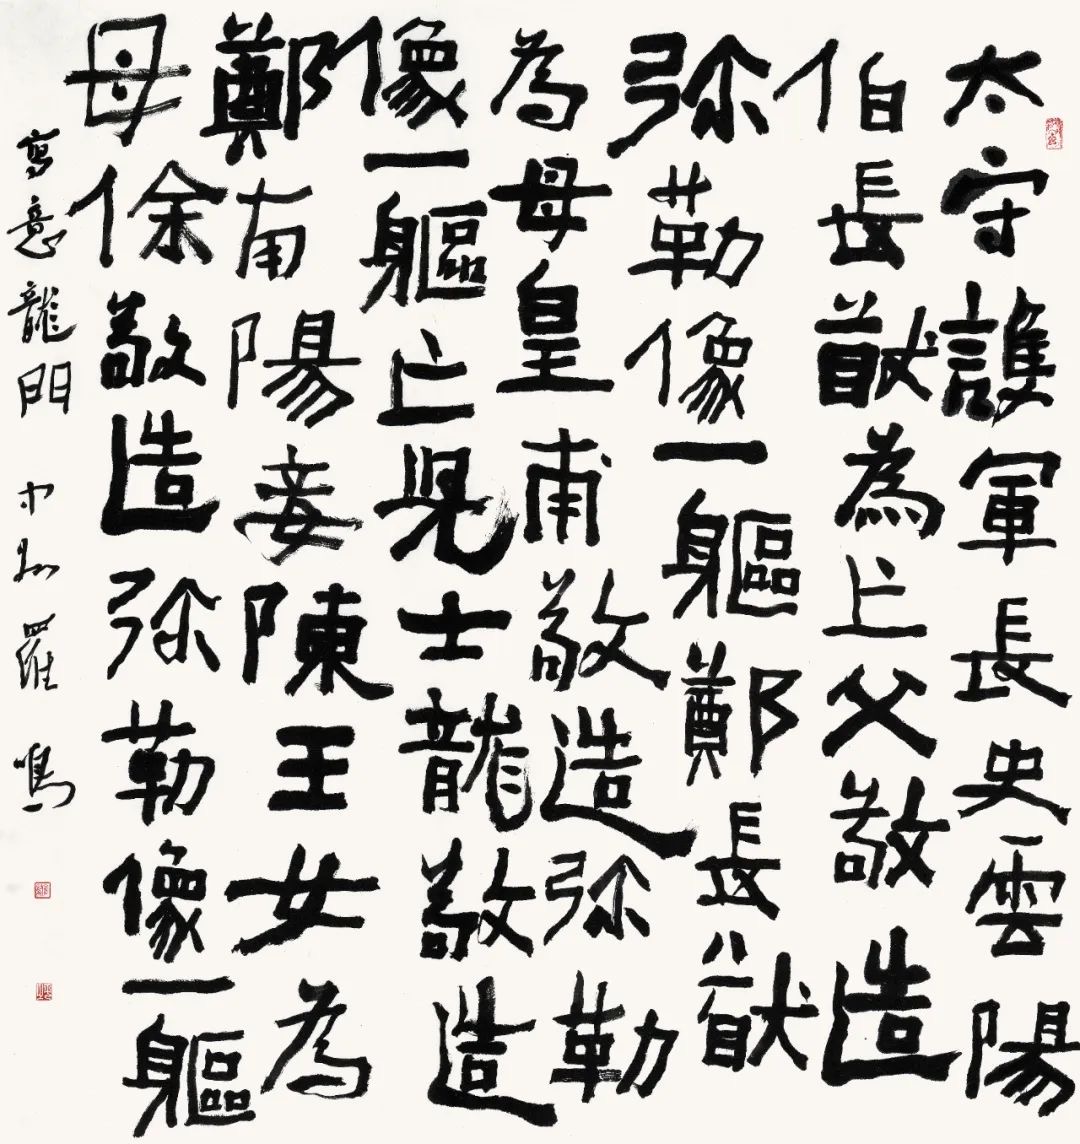 太守護軍長史雲陽
伯長猷為亡父敬造
弥勒像一軀鄭長猷
為母皇甫敬造弥勒
像一軀亡兒士龍敬造
鄭南陽妾陳王女為
母徐敬造弥勒像一軀
寫意龍門 羅鳴